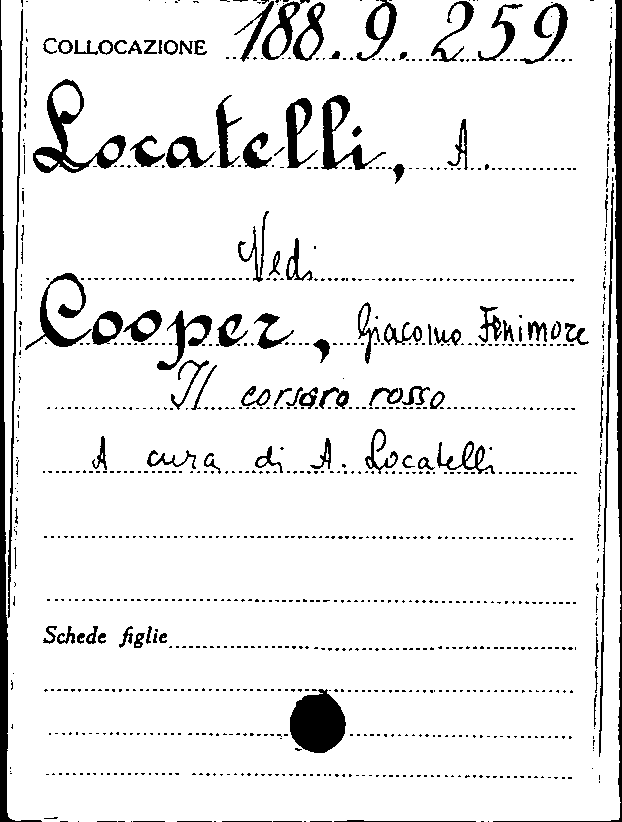 COLLOCAZIONE 188.9.259
Locatelli, A.
Vedi
Cooper, Giacomo Fenimore
Il corsaro rosso
A cura di A. Locatelli
Schede figlie